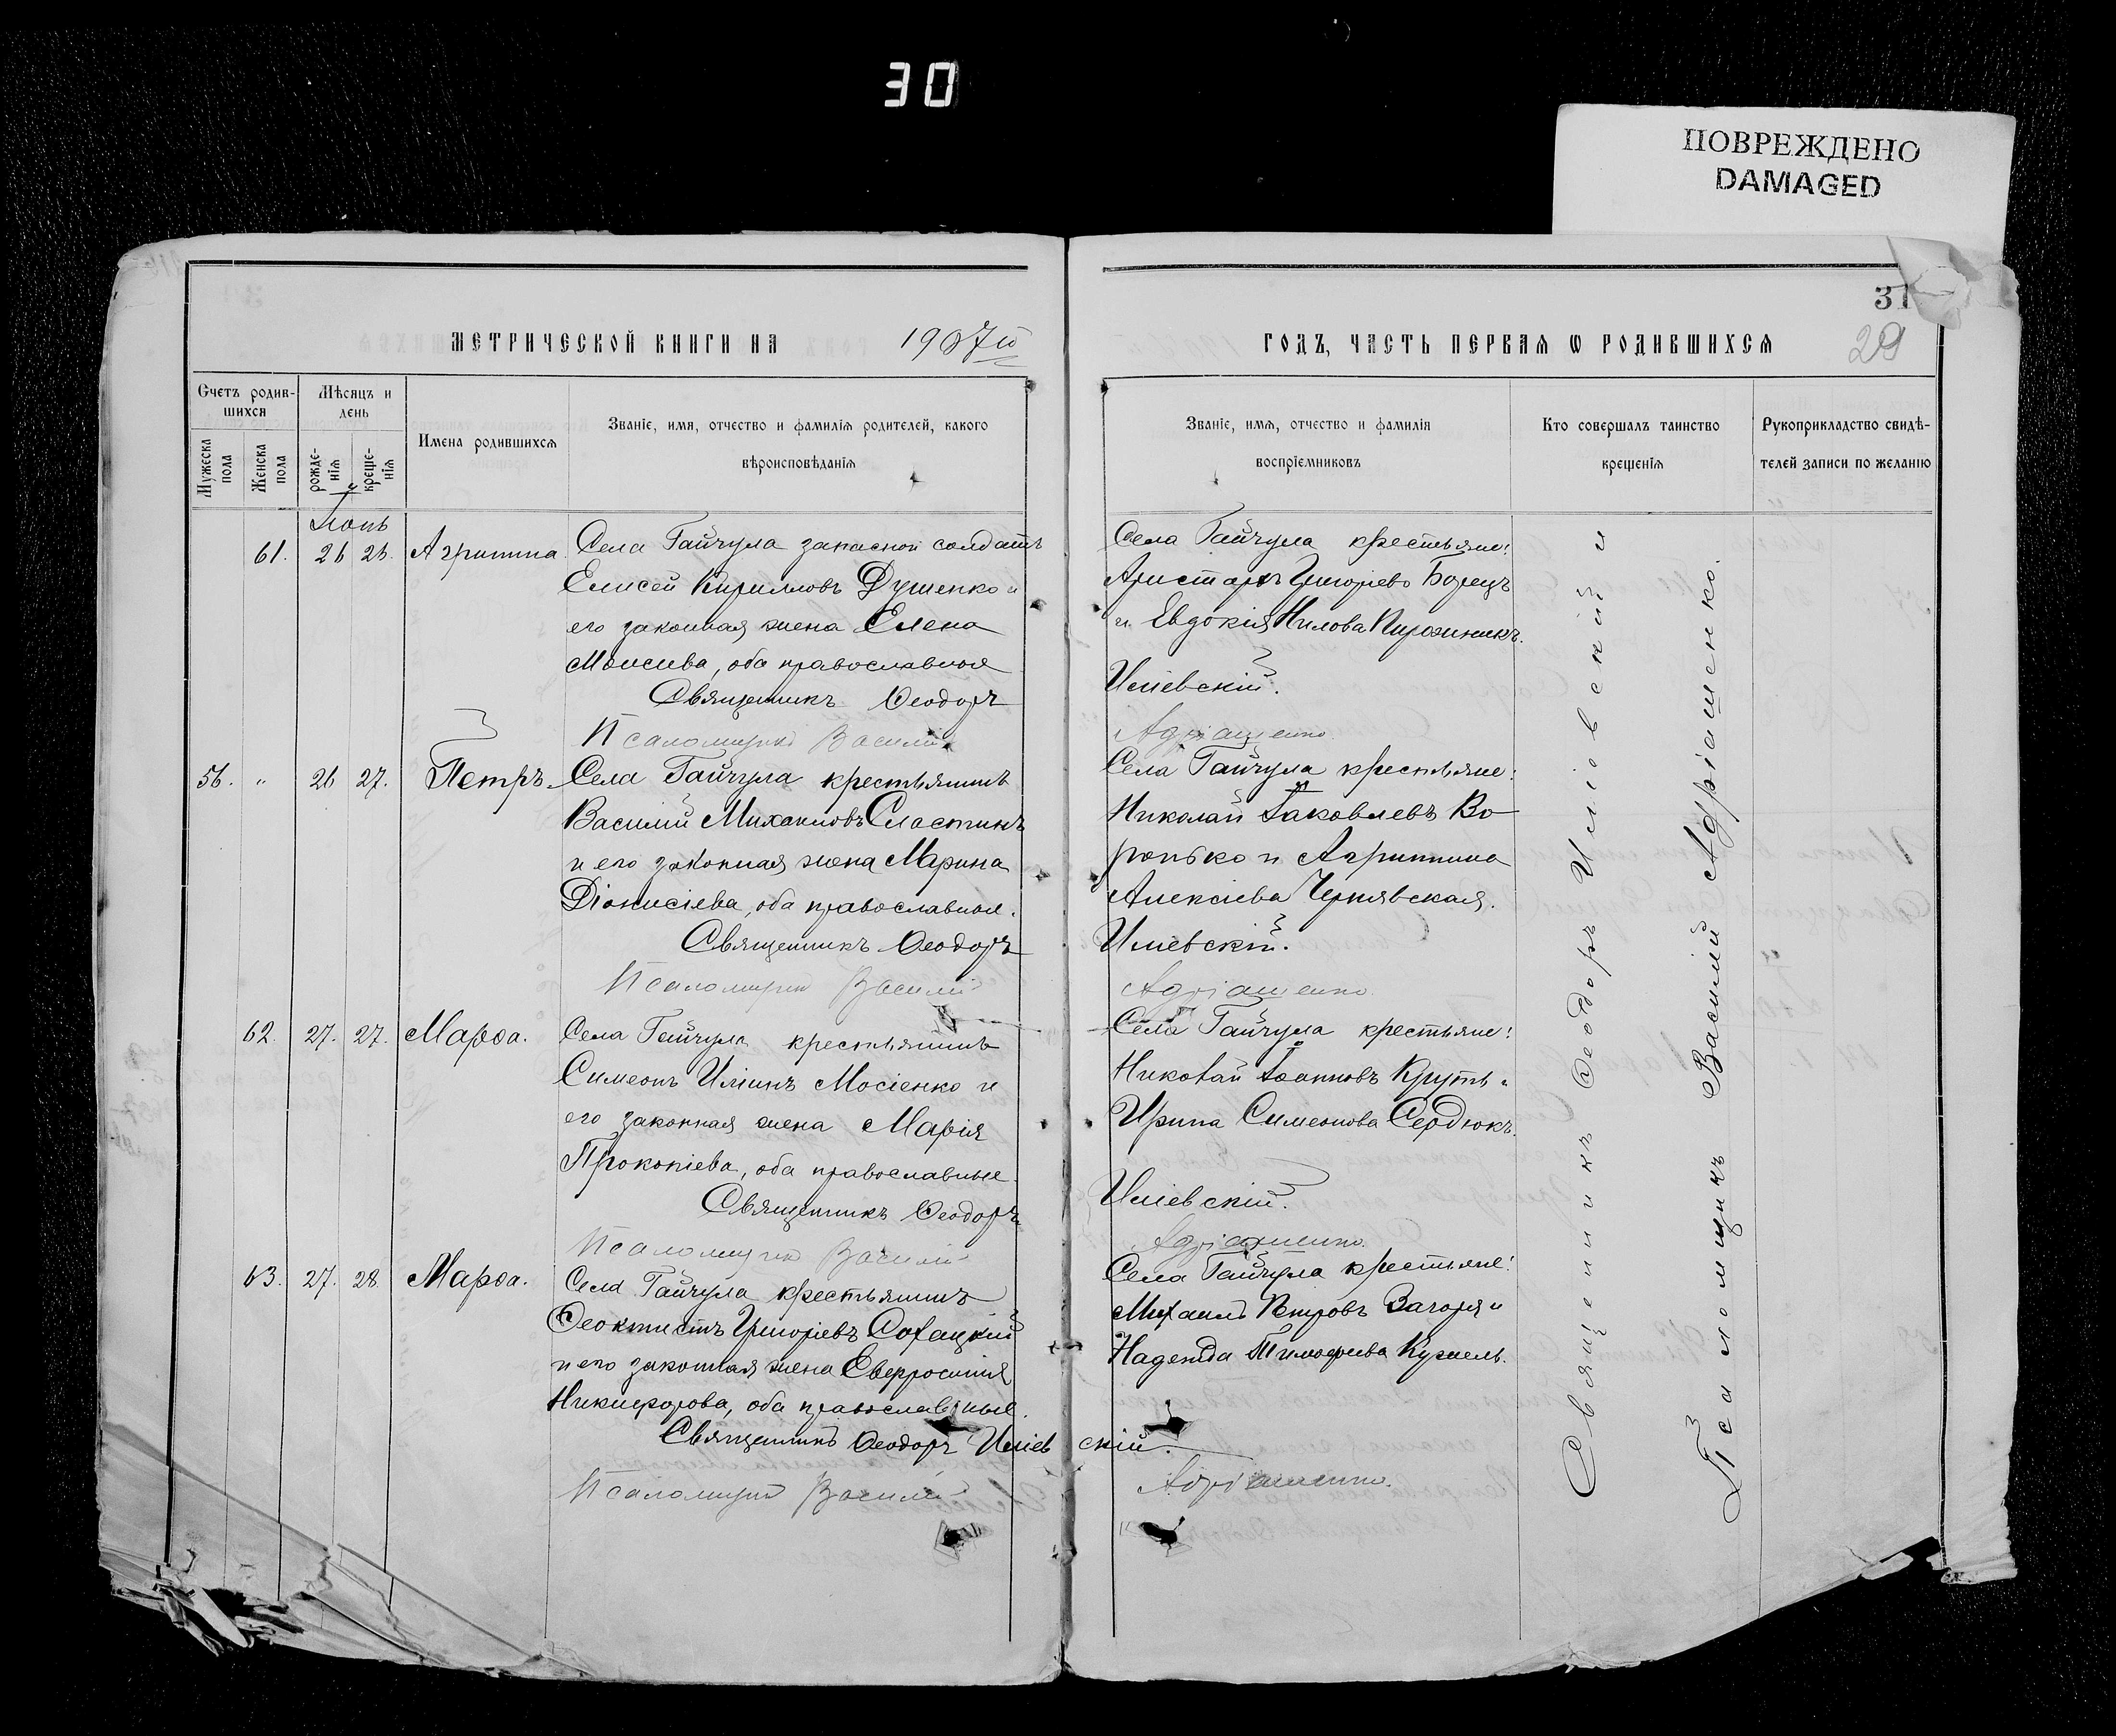 30
ПОВРЕЖДЕНО
DAMAGED
МЕТРИЧЕСКОЙ КНИГИ НА 1907й
Счетъ родив-
шихся
Мужеска пола
Женска пола
Мѣсяцъ и
день
рожде-
нія
креще-
нія
Имена родившихся
Званіе, имя, отчество и фамилія родителей, какого
вѣроисповѣданія
Іюнь
61. 26 26. Агриппина. Села Гайчула запасной солдатъ
Елисей Кирилловъ Душенко и
его законная жена Елена
Моисеева, оба православные
Священникъ Ѳеодоръ
Псаломщикъ Василій
56. " 26 27. Петръ. Села Гайчула крестьянинъ
Василій Михаиловъ Сластинъ
и его законная жена Марина
Діонисіева, оба православные.
Священникъ Ѳеодоръ
Псаломщикъ Василій
62. 27. 27. Марѳа. Села Гайчула крестьянинъ
Симеонъ Иліинъ Мосіенко и
его законная жена Марія
Прокопіева, оба православные
Священникъ Ѳеодоръ
Псаломщикъ Василій
63. 27. 28 Марѳа. Села Гайчула крестьянинъ
Ѳеоктистъ Григоріевъ Сохацкій
и его законная жена Евфросинія
Никифорова, оба православные.
Священникъ Ѳеодоръ Иліев
Псаломщикъ Василій
31
ГОДЪ, ЧАСТЬ ПЕРВАЯ Ѡ РОДИВШИХСЯ
29
Званіе, имя, отчество и фамилія
воспріемниковъ
Кто совершалъ таинство
крещенія
Рукоприкладство свидѣ-
телей записи по желанію
Села Гайчула крестьяне:
Аристархъ Григоріевъ Борецъ
и Евдокія Нилова
Иліевскій.
Адріашенко.
Села Гайчула крестьяне:
Николай Іаковлевъ Во-
ронько и Агриппина
Алексіева Чернявская.
Иліевскій.
Адріашенко.
Села Гайчула крестьяне:
Николай Іоанновъ Круть и
Ирина Симеонова Сердюкъ.
Иліевскій.
Адріашенко.
Села Гайчула крестьяне:
Михаилъ Петровъ Загоря и
Надежда Тимофеева Кужель.
скій.
Адріашенко.
Священникъ Ѳеодоръ Иліевскій и
Псаломщикъ Василій Адріашенко.